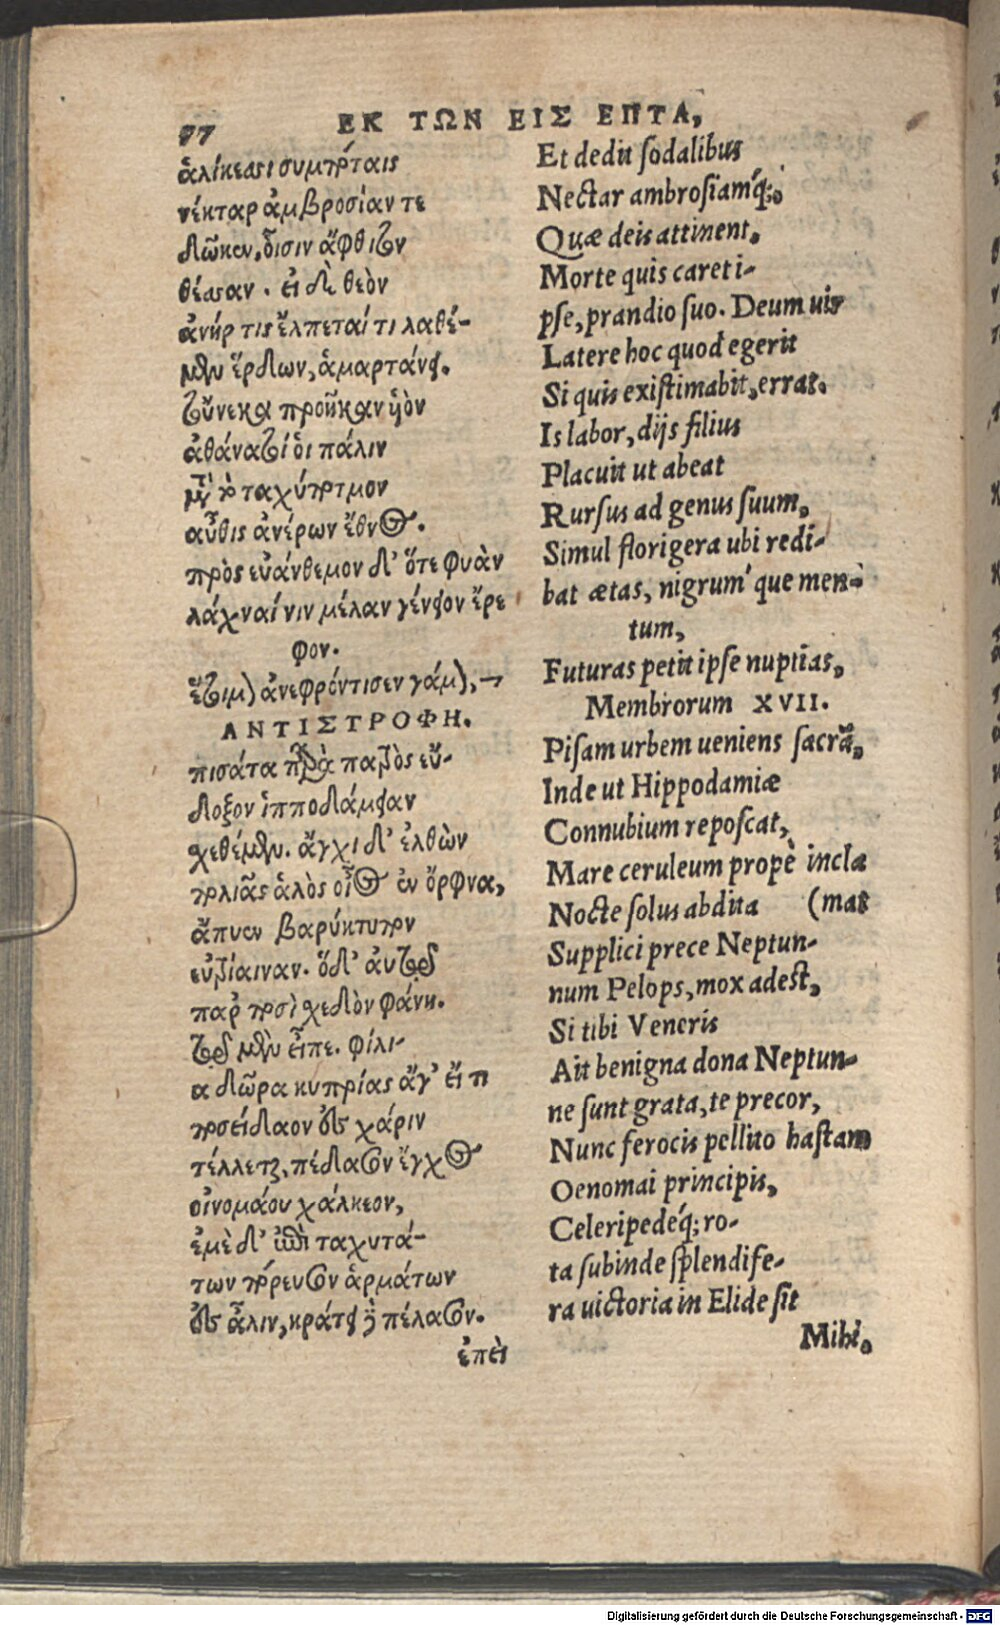 ΕΚ ΤΩΝ ΕΙΣ ΕΠΤΑ,
ἁλίκεσσι συμπόταις
νέκταρ ἀμβροσίαν τε
δῶκεν, οἷσιν ἄφθιτον
θέσσαν. εἰ δὲ θεὸν
ἀνήρ τις ἔλπεταί τι λαθέ-
μεν ἕρδων, ἁμαρτάνει.
τοὔνεκα προῆκαν υἱὸν
ἀθάνατοί οἱ πάλιν
μετὰ τὸ ταχύποτμον
αὖθις ἀνέρων ἔθνος.
πρὸς εὐάνθεμον δ' ὅτε φυὰν
λάχναι νιν μέλαν γένειον ἔρε
φον.
ἕτοιμον ἀνεφρόντισεν γάμον,
ΑΝΤΙΣΤΡΟΦΗ.
πισάτα παρὰ πατρὸς εὔ-
δοξον ἱπποδάμειαν
σχεθέμεν. ἄγχι δ' ἐλθὼν
πολιᾶς ἁλὸς οἶος ἐν ὄρφνᾳ,
ἄπυεν βαρύκτυπον
εὐτρίαιναν. ὁ δ' αὐτῷ
παρ ποσὶ σχεδὸν φάνη.
τῷ μὲν εἶπε. φίλι-
α δῶρα κυπρίας ἄγ' εἴ τι
ποσείδαον ἐς χάριν
τέλλεται, πέδασον ἔγχος
οἰνομάου χάλκεον,
ἐμὲ δ' ἐπὶ ταχυτά-
των πόρευσον ἁρμάτων
ἐς ἆλιν, κράτει δὲ πέλασον.
ἐπεὶ
Et dedit sodalibus
Nectar ambrosiamq́;
Quæ deis attinent,
Morte quis careti-
pse, prandio suo. Deum uir
Latere hoc quod egerit
Si quis existimabit, errat.
Is labor, dijs filius
Placuit ut abeat
Rursus ad genus suum,
Simul florigera ubi redi-
bat ætas, nigrum' que men-
tum,
Futuras petit ipse nuptias,
Membrorum XVII.
Pisam urbem ueniens sacrā,
Inde ut Hippodamiæ
Connubium reposcat,
Mare ceruleum propè incla
Nocte solus abdita (mat
Supplici prece Neptun-
num Pelops, mox adest,
Si tibi Veneris
Ait benigna dona Neptun-
ne sunt grata, te precor,
Nunc ferocis pellito hastam
Oenomai principis,
Celeripedéq; ro-
ta subinde splendife-
ra uictoria in Elide sit
Mihi.
Digitalisierung gefördert durch die Deutsche Forschungsgemeinschaft - DFG